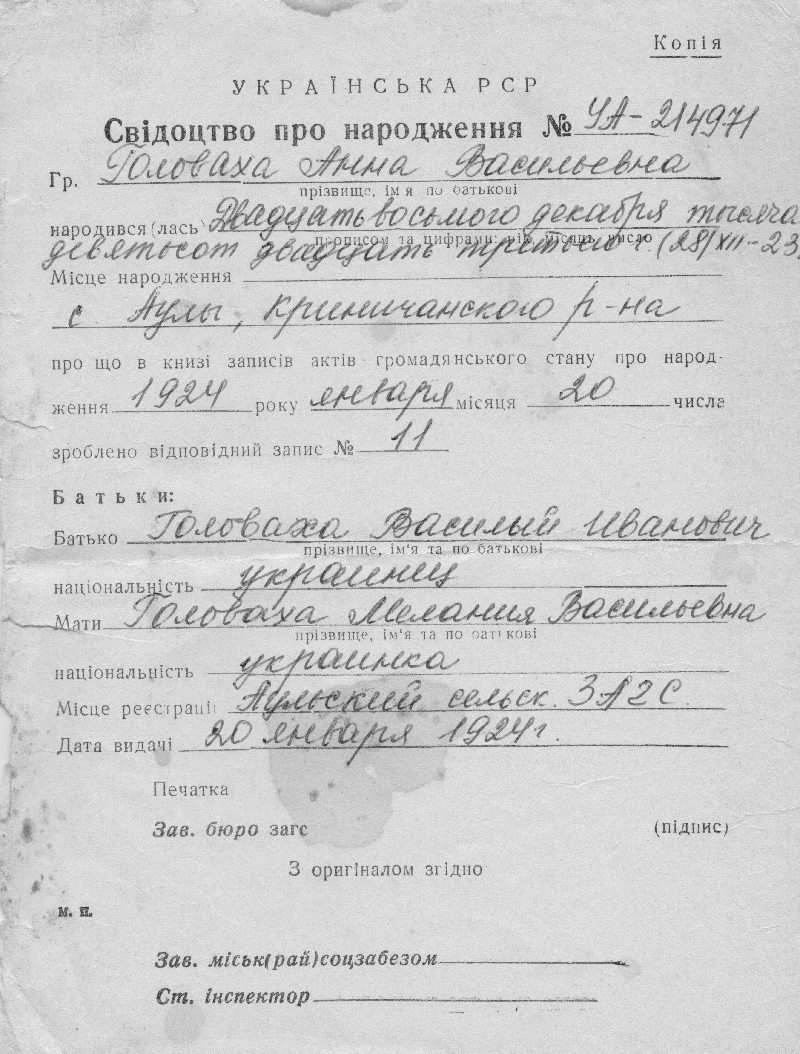 Копія
УКРАЇНСЬКА РСР
Свідоцтво про народження № УА-214971
Гр. Головаха Анна Васильевна
прізвище, ім'я по батькові
народився(лась) Двадцать восьмого декабря тысяча
прописом та цифрами: рік, місяць, число
девятьсот двадцать третьего г. (28/XII-23)
Місце народження
с Аулы, Криничанского р-на
про що в книзі записів актів громадянського стану про народ-
ження 1924 року января місяця 20 числа
зроблено відповідний запис № 11
Батьки:
Батько Головаха Василий Иванович
прізвище, ім'я та по батькові
національність украинец
Мати Головаха Мелания Васильевна
прізвище, ім'я та по батькові
національність украинка
Місце реєстрації Аульский сельск. ЗАГС.
Дата видачі 20 января 1924г.
Печатка
Зав. бюро загс (підпис)
З оригіналом згідно
м. п.
Зав. міськ(рай)соцзабезом
Ст. інспектор